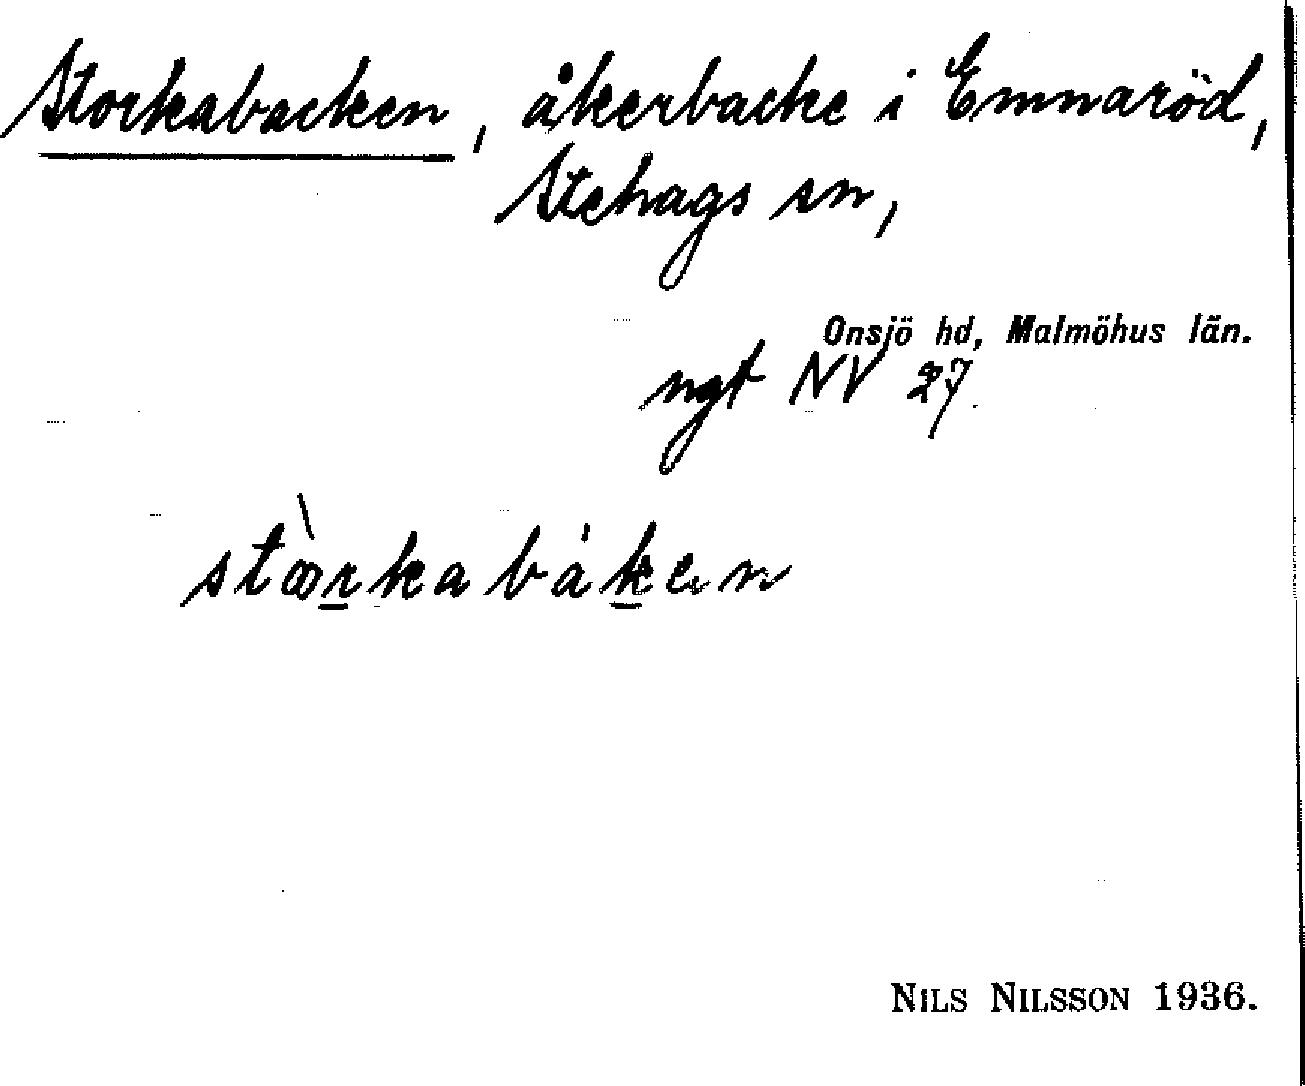 Storkabacken, åkerbacke i Emnaröd,
Stehags sn,
Onsjö hd, Malmöhus län.
ngt NV 27.
NILS NILSSON 1936.